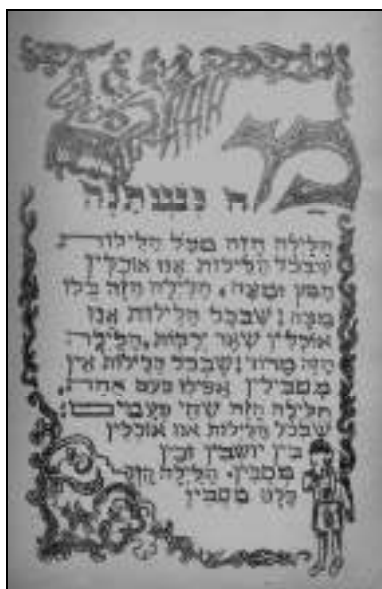 מה נשתנה
הלילה הזה מכל הלילות
שבכל הלילות אנו אוכלין
חמץ ומצה. הלילה הזה כלו
מצה: שבכל הלילות אנו
אוכלין שאר ירקות. הלילה
הזה מרור: שבכל הלילות אין
מטבילין אפילו פעם אחת.
הלילה הזה שתי פעמים:
שבכל הלילות אנו אוכלין
בין יושבין ובין
מסבין. הלילה הזה
כלנו מסבין